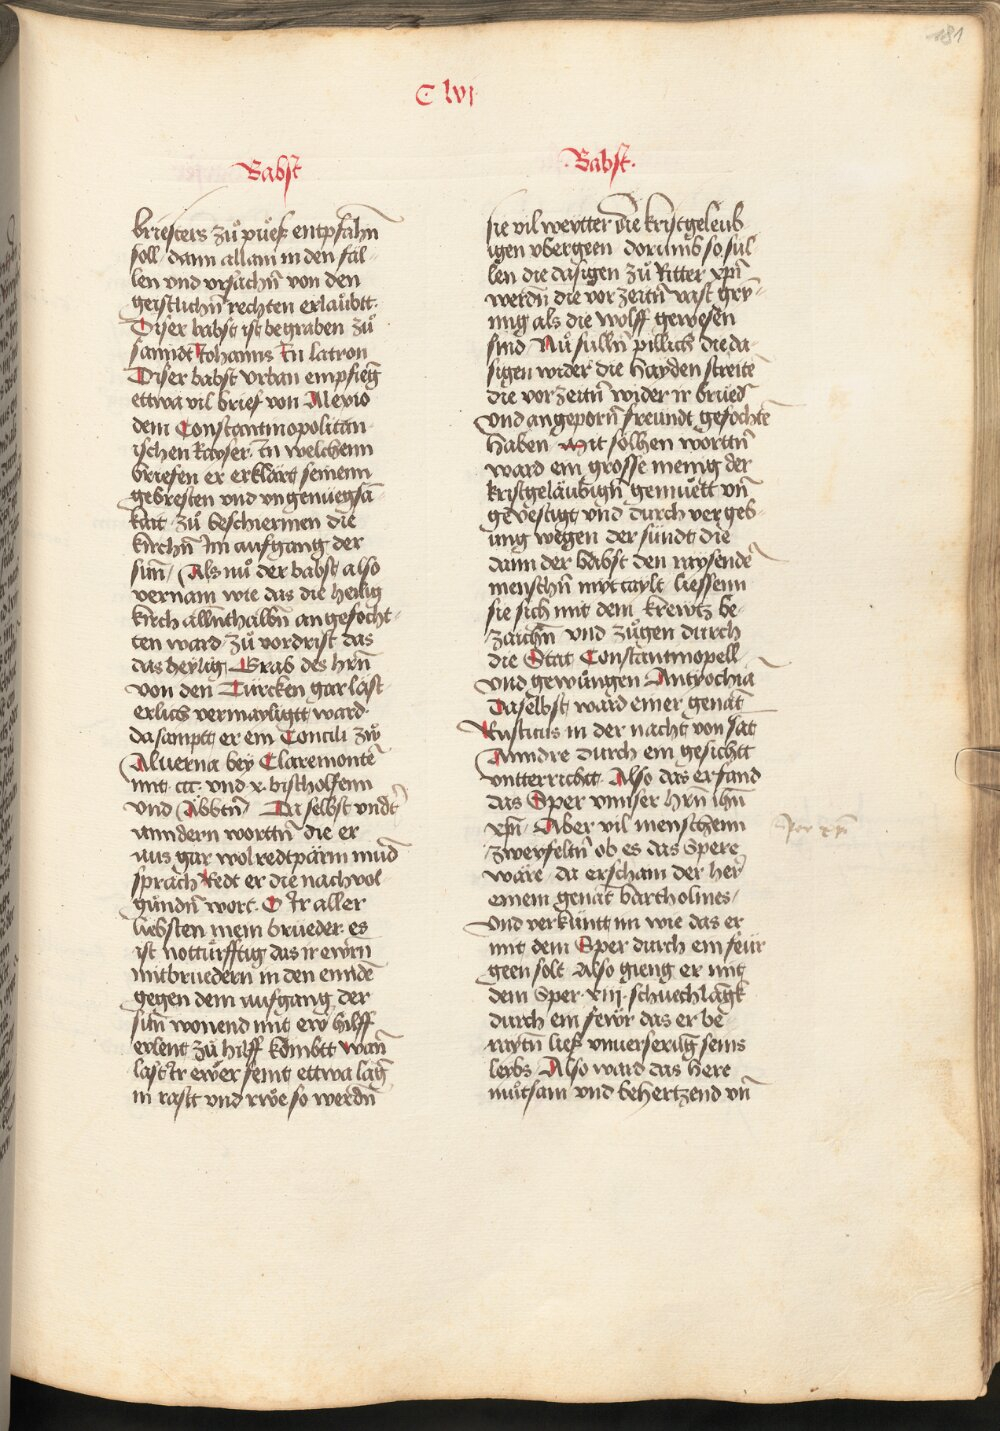 181
C lvi
Babst
briesters zů pueß entpfahn̄
soll · dann allain in den fäl-
len vnd vrsachn̄ von den
geistlichn̄ rechten erlaubtt·
Diser babst ist begraben zů
sanndt Johanns In latron
Diser babst vrban empfieng
ettwa vil brief von Alexio
dem Constantinopolitan-
ischen kayser· In welchenn
briefen er erklärt seinenn
gebresten vnd vngenuegsā-
kait · zů beschiermen die
kirchn̄ Im aufgang der
sun̄ / Als nů der babst also
vernam wie das die heilig
kirch allnthalbn̄ angefocht-
ten ward · zů vordrist das
das heylig Grab des hrn̄
von den Türcken gar läst-
erlich vermayligtt ward·
da samptt er ein Concili zẘ
Aluerna bey Claremonte
mit ccc· vnd x· bischolfenn
vnd Äbbtn̄ · Da selbst vndt̄
anndern worttn̄ die er
aus gar wolredtpärm mud̄
sprach Redt er die nachuol
gundn̄ wort· O Ir aller
liebsten mein brueder· es
ist notturfftig das ir ewrn̄
mitbruedern in den ennden̄
gegen dem aufgang der
sun̄ wonend mit ew̄r hilff
eylent zů hilff kombtt wan̄
last Ir ewer feint ettwa lāg
in rastt vnd rwe so werdn̄
·Babst·
sie vil weytter die kristgeleub
igen vbergeen dorumb so sul-
len die dasigen zů Ritter xp̄i
werdn̄ die vor zeitn̄ vast gry-
mig als die wolff gewesen
sind · Nů sulln̄ pillich die da-
sigen wider die Hayden streitē
die vor zeitn̄ wider ir brued̄
vnd angeporn̄ freundt gefochtē
haben · Mit solhen worttn̄
ward ein grosse menig der
kristgeläubign̄ gemuett vn̄
geuestigt vnd durch vergeb-
ung wegen der sündt die
dann der babst den raysendē
menschn̄ mittaylt liessenn
sie sich mit dem krewtz be-
zaichn̄ vnd zůgen durch
die Stat Constantinopell
vnd gewungen Antyochia
Daselbst ward einer genāt
Rusticus in der nacht von sāt
Anndre durch ein gesichtt
vntterrichtt· Also das er fand
das Sper vnnser hrn̄ ihū
xp̄i· Aber vil menschenn
zweyfeltn̄ ob es das Spere
wäre · da erscham der her̄
einem genāt bartholmes /
vnd verkünttt im wie das er
mit dem Sper durch ein feür
geen solt· Also gieng er mit
dem Sper· xiij· schuech lāgk
durch ein fewr das er be
raytn̄ ließ vnuerserilg seins
leybs· Also ward das here
muetsam vnd behertzend vn̄
Sper xp̄i